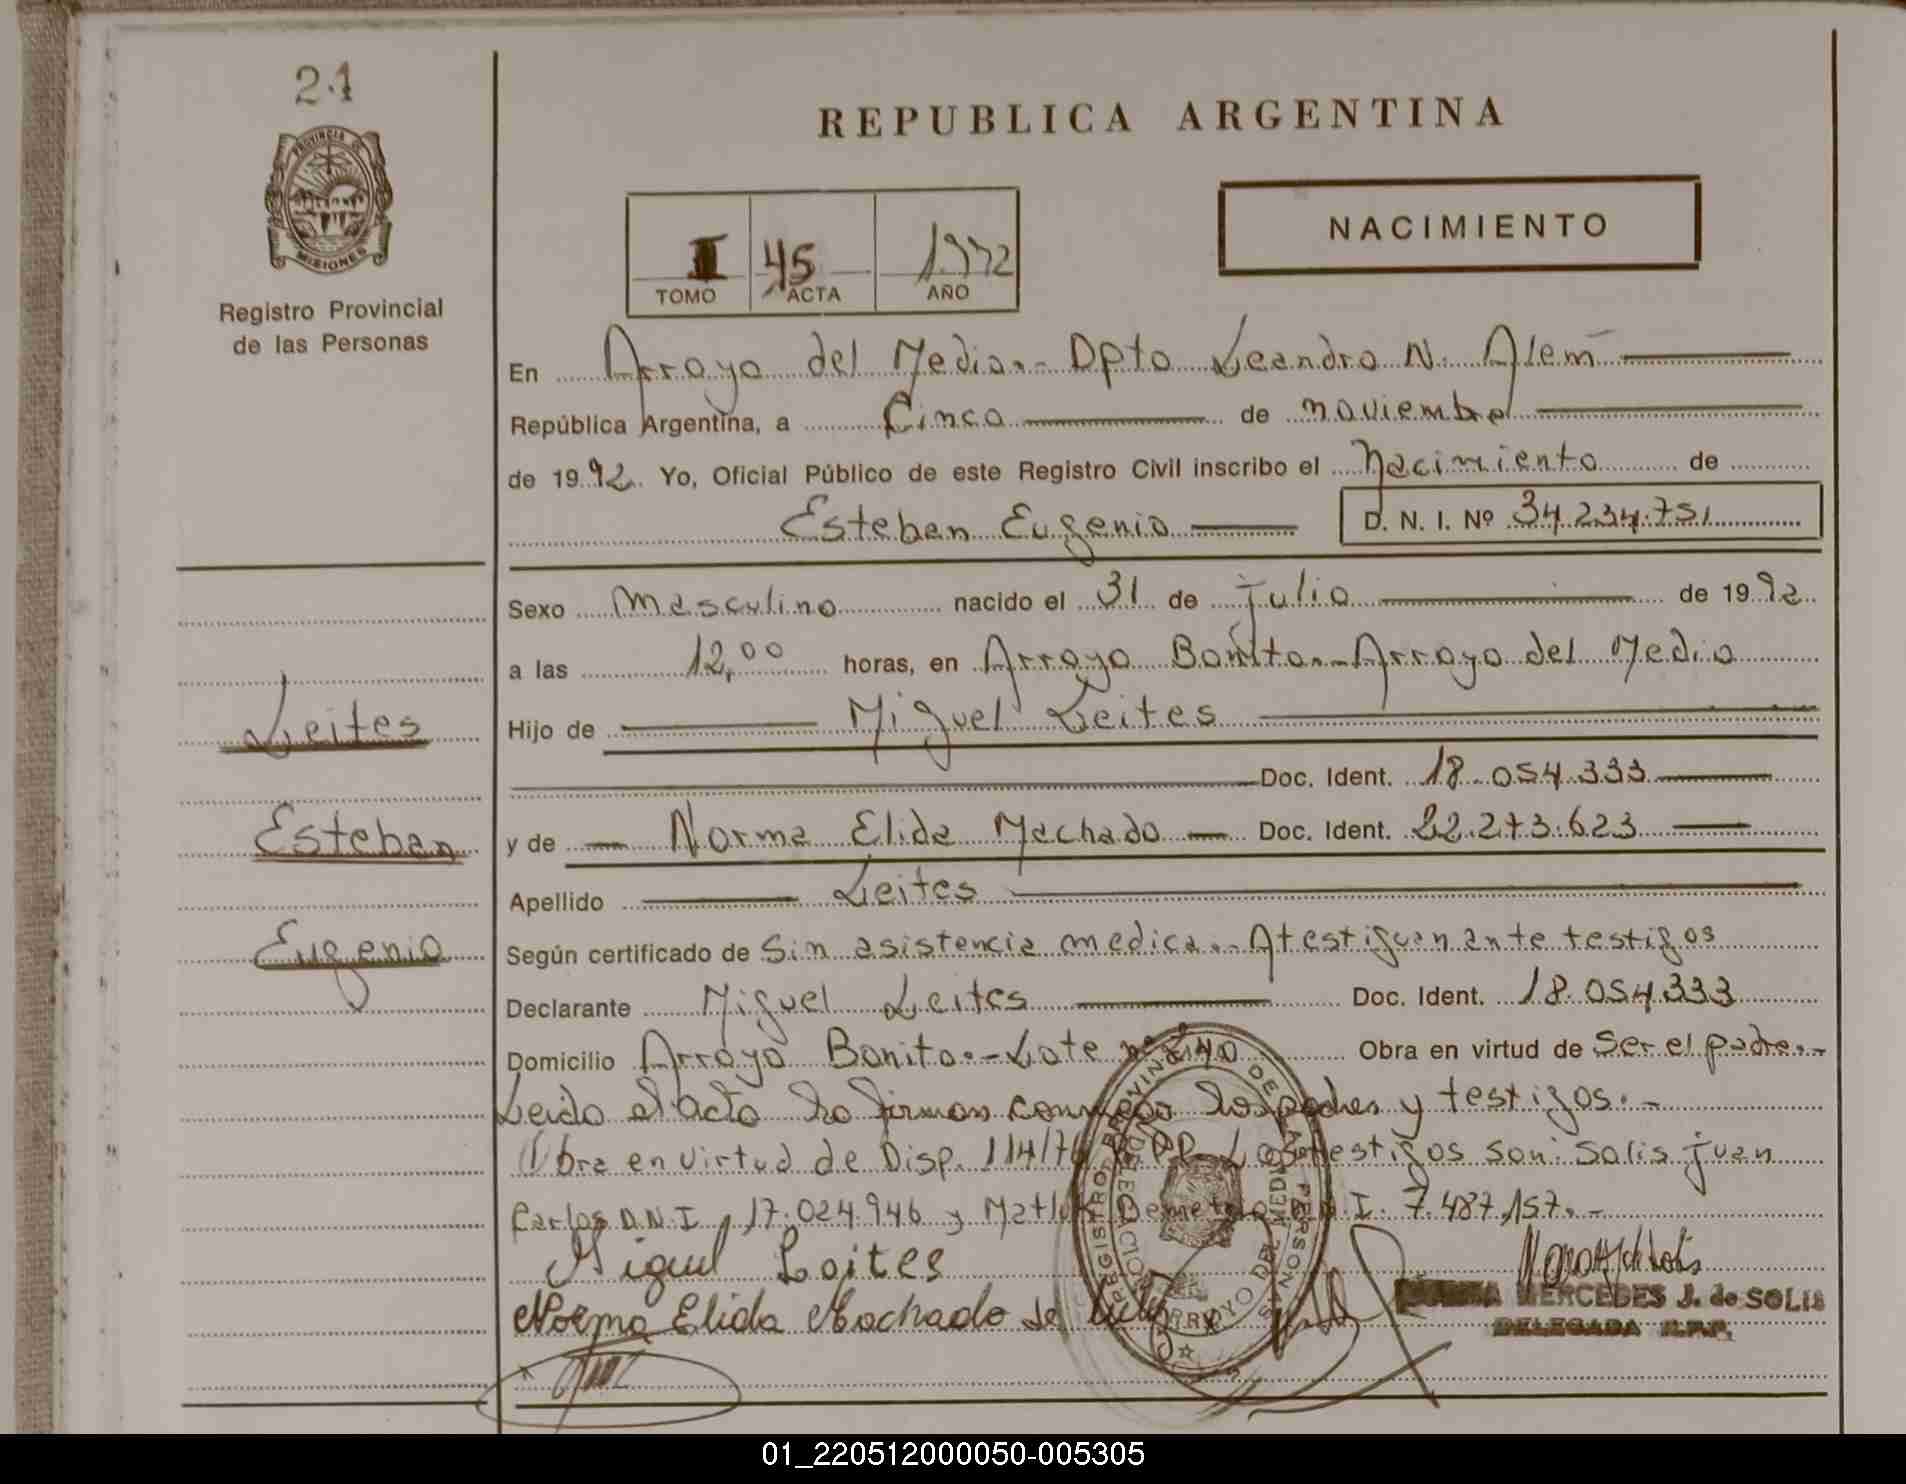 21
PROVINCIA DE
MISIONES
Registro Provincial
de las Personas
REPUBLICA ARGENTINA
NACIMIENTO
I 45 1992
TOMO ACTA AÑO
En Arroyo del Medio.- Dpto Leandro N. Alem
República Argentina, a Cinco de noviembre
de 1992. Yo, Oficial Público de este Registro Civil inscribo el Nacimiento de
Esteban Eugenio D. N. I. Nº 34.234.751
Sexo Masculino nacido el 31 de julio de 1992
a las 12,00 horas, en Arroyo Bonito.- Arroyo del Medio
Hijo de Miguel Leites
Doc. Ident. 18.054.333
y de Norma Elida Machado Doc. Ident. 22.273.623
Apellido Leites
Según certificado de Sin asistencia medica.- Atestiguan ante testigos
Declarante Miguel Leites Doc. Ident. 18.054.333
Domicilio Arroyo Bonito.- Lote nº 240 Obra en virtud de Ser el padre.-
Leido el acto lo firman conmigo los padres y testigos.-
Obra en virtud de Disp. 114/76 Los testigos son: Solis Juan
Carlos D.N.I. 17.024.946 y D.N.I. 7.487.157.-
Miguel Loites
Norma Elida Machado de
MERCEDES J. de SOLIS
DELEGADA R.P.P.
REGISTRO PROVINCIAL DE LAS PERSONAS
ARROYO DEL MEDIO
Leites
Esteban
Eugenio
01_220512000050-005305